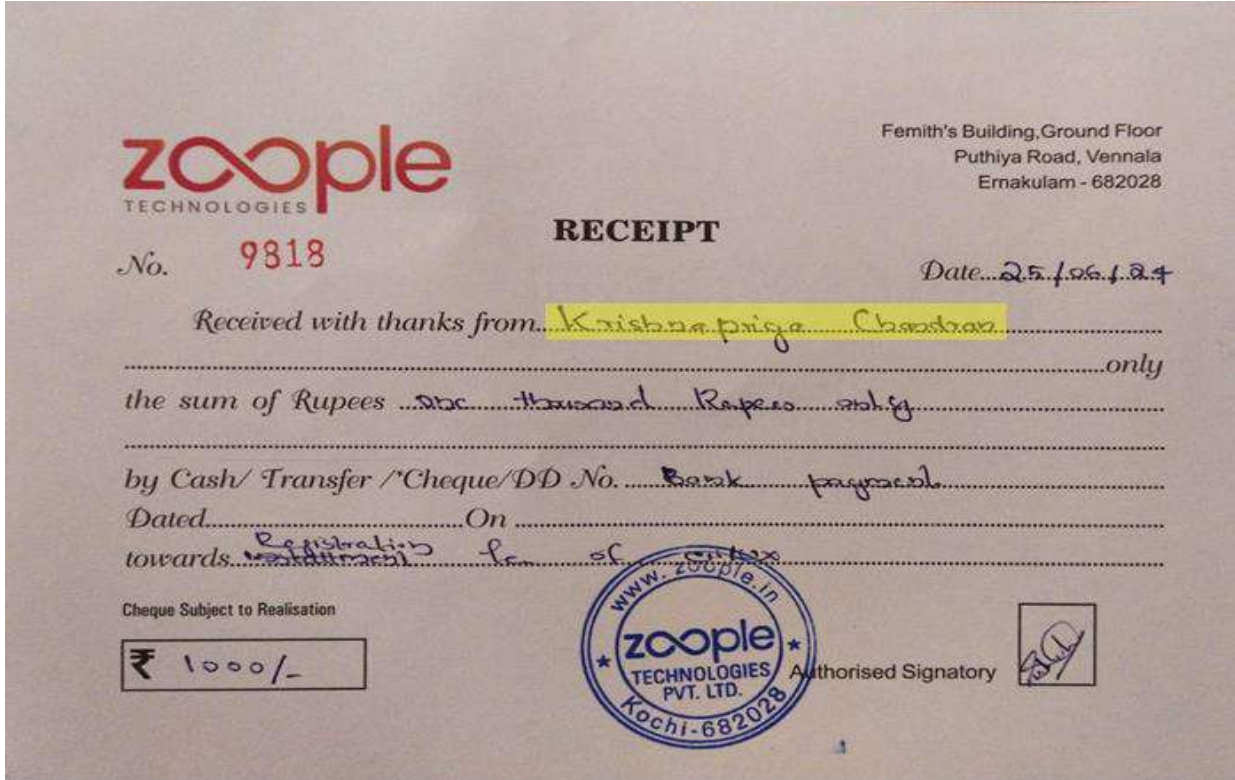 zoople
TECHNOLOGIES
Femith's Building,Ground Floor
Puthiya Road, Vennala
Ernakulam - 682028
RECEIPT
No. 9818
Date 25/06/24
Received with thanks from Krishnapriya Chandran
only
the sum of Rupees one thousand Rupees only
by Cash/ Transfer /*Cheque/DD No. Bank payment
Dated On
Registration
towards installment fee of
Cheque Subject to Realisation
₹ 1000/-
www.zoople.in
zoople
TECHNOLOGIES
PVT. LTD.
Kochi-682028
Authorised Signatory